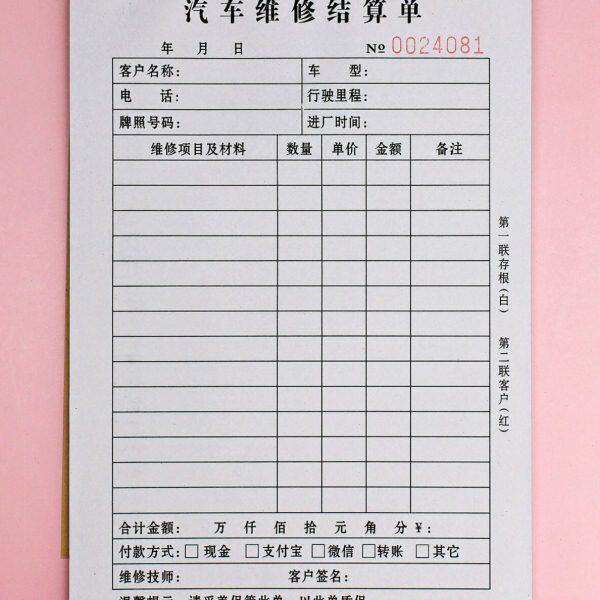 汽车维修结算单
年 月 日 № 0024081
客户名称： 车 型：
电 话： 行驶里程：
牌照号码： 进厂时间：
维修项目及材料 数量 单价 金额 备注
合计金额： 万 仟 佰 拾 元 角 分 ¥：
付款方式：□现金 □支付宝 □微信 □转账 □其它
维修技师： 客户签名：
温馨提示：请妥善保管此单，以此单质保
第一联存根（白）
第二联客户（红）